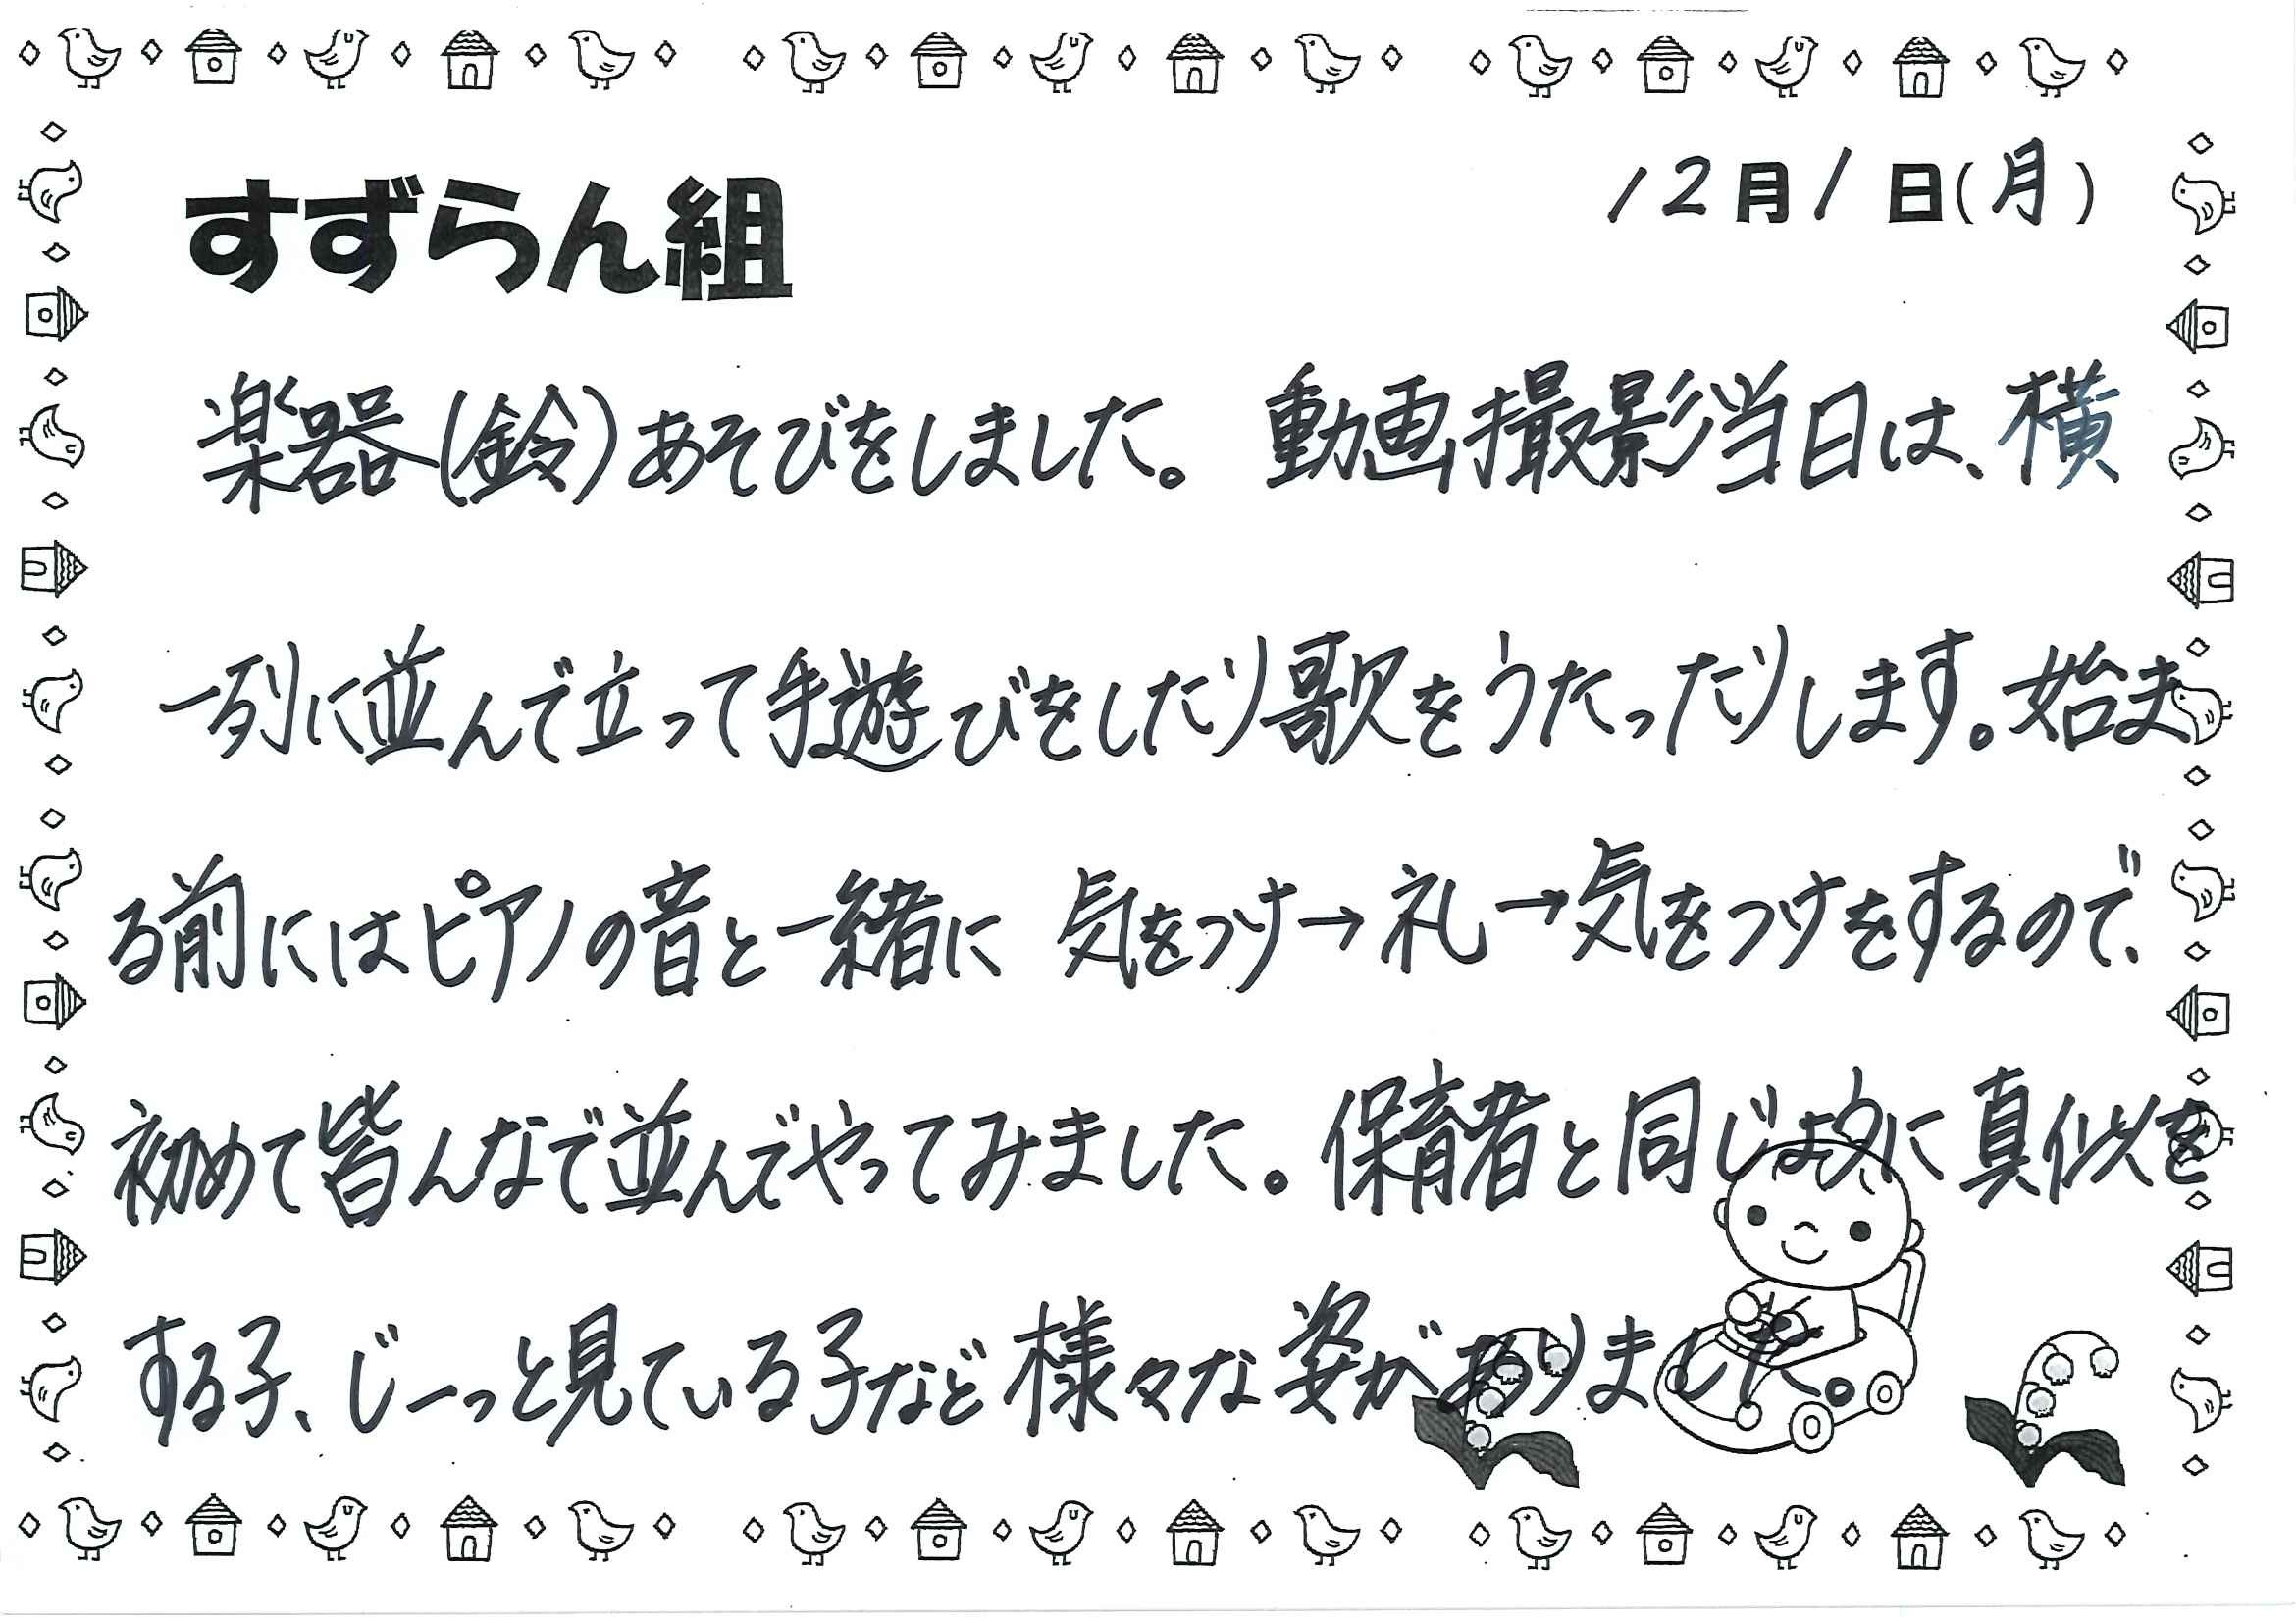 すずらん組
12月1日(月)
楽器(鈴)あそびをしました。動画撮影当日は、横
一列に並んで立って手遊びをしたり歌をうたったりします。始ま
る前にはピアノの音と一緒に 気をつけ→礼→気をつけをするので、
初めて皆んなで並んでやってみました。保育者と同じように真似を
する子、じーっと見ている子など様々な姿がありました。